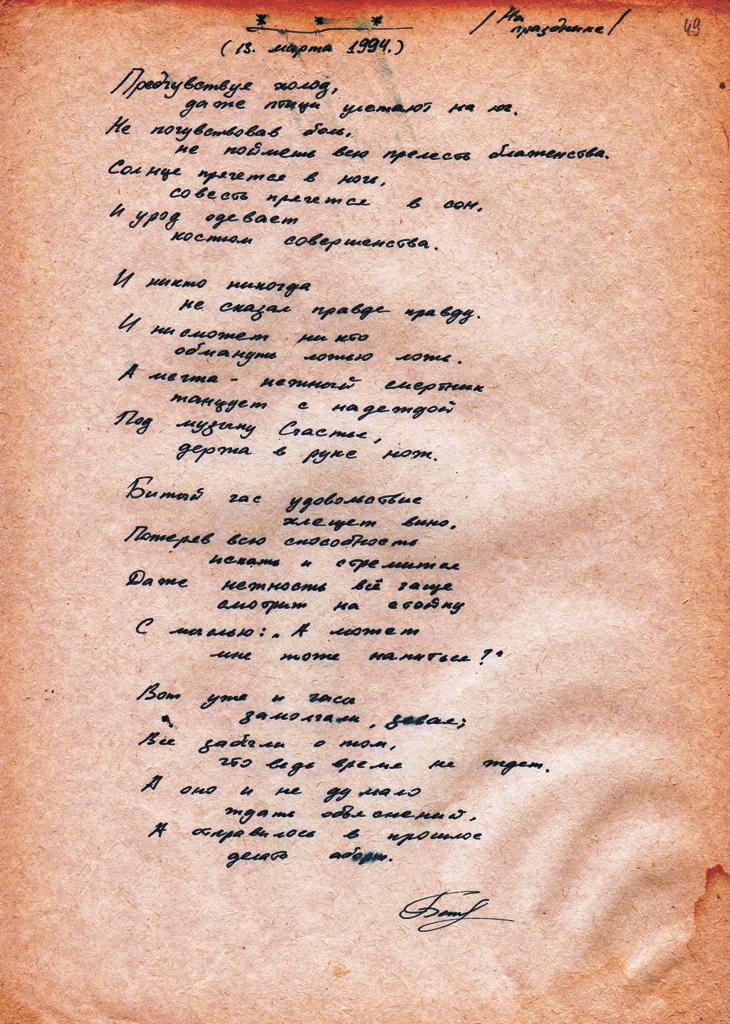 * * *
/На празднике/
49
(13. марта 1994.)
Предчувствуя холод,
даже птицы улетают на юг.
Не почувствовав боль,
не поймешь всю прелесть блаженства.
Солнце прячется в ночи,
совесть прячется в сон.
И урод одевает
костюм совершенства.
И никто никогда
не сказал правде правду.
И ни сможет ни кто
обмануть ложью ложь.
А мечта - нежный смертник
танцует с надеждой
Под музыку Счастья,
держа в руке нож.
Битый час удовольствие
хлещет вино,
Потеряв всю способность
искать и стремится
Даже нежность всё чаще
смотрит на стойку
С мыслью: „А может
мне тоже напиться?"
Вот уже и часы
замолчали, зевая;
Все забыли о том,
что ведь время не ждет.
А оно и не думало
ждать объяснений,
А отправилось в прошлое
делать аборт.